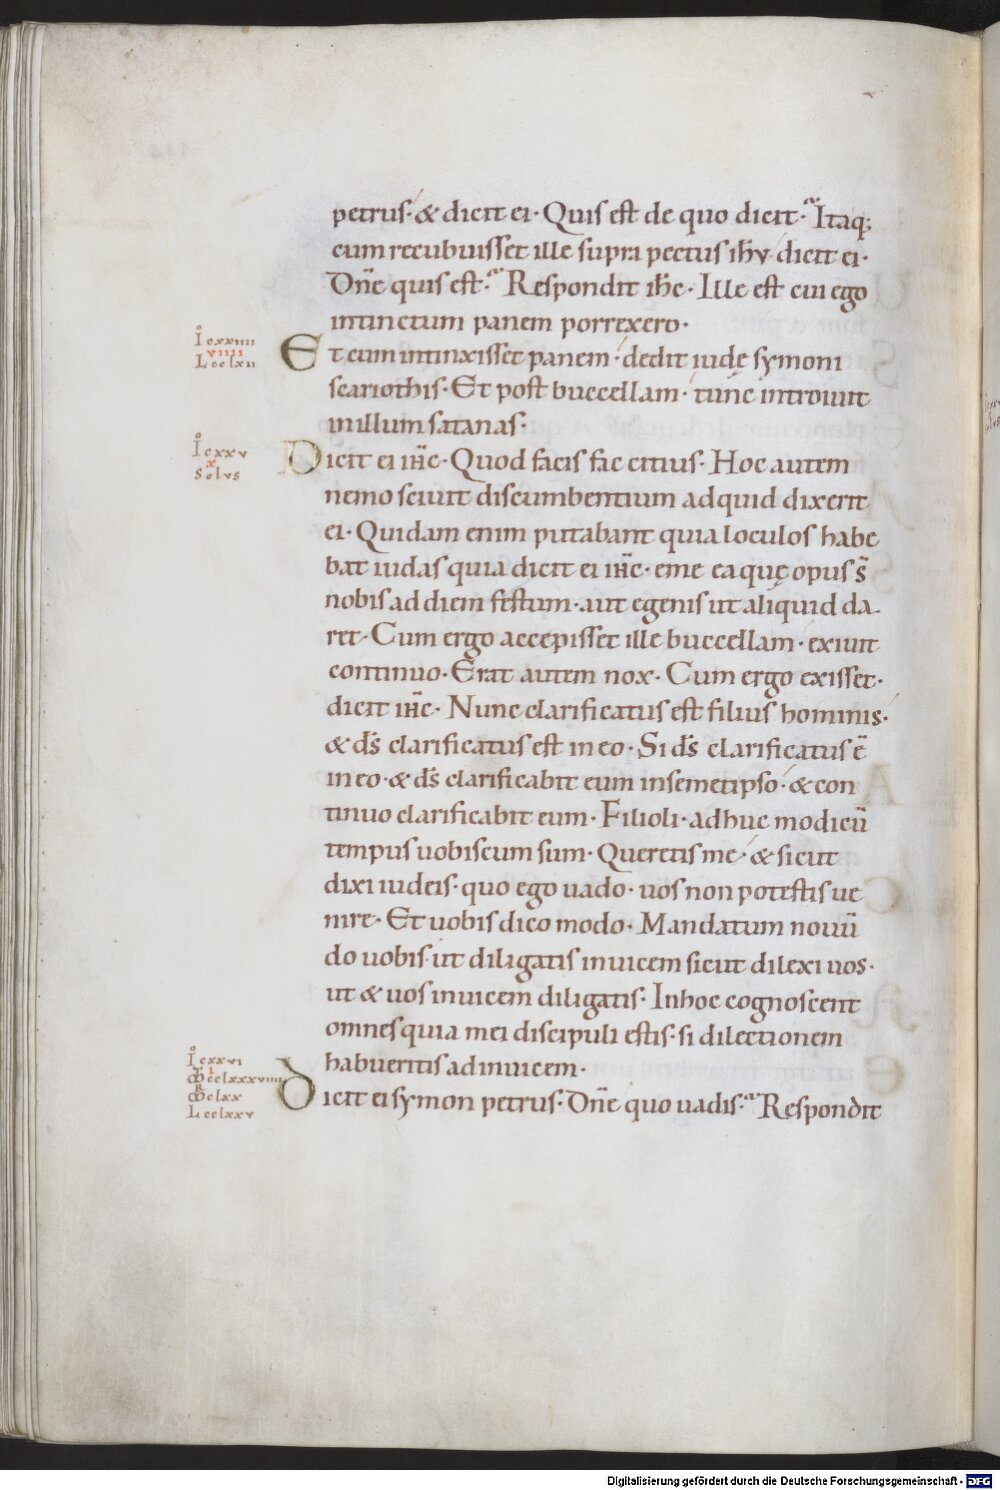 petrus· & dicit ei· Quis est de quo dicit· Itaq;
cum recubuisset ille supra pectus ihv dicit ei·
Dn̄e quis est· Respondit ih̄c· Ille est cui ego
intinctum panem porrexero·
I cxxiiii
viiii
L cclxii
Et cum intinxisset panem· dedit iudę symoni
scariothis· Et post buccellam· tunc introiuit
in illum satanas·
I cxxv
x
solvs
Dicit ei ih̄c· Quod facis fac citius· Hoc autem
nemo sciuit discumbentium ad quid dixerit
ei· Quidam enim putabant quia loculos habe
bat iudas quia dicit ei ih̄c· eme ea quę opus s̄
nobis ad diem festum· aut egenis ut aliquid da-
ret· Cum ergo accepisset ille buccellam· exiuit
continuo· Erat autem nox· Cum ergo exisset·
dicit ih̄c· Nunc clarificatus est filius hominis·
& d̄s clarificatus est in eo· Si d̄s clarificatus ē
in eo· & d̄s clarificabit eum in semetipso· & con
tinuo clarificabit eum· Filioli· adhuc modicū
tempus uobiscum sum· Queretis me· & sicut
dixi iudeis· quo ego uado· uos non potestis ue
nire· Et uobis dico modo· Mandatum nouū
do uobis ut diligatis inuicem sicut dilexi uos·
ut & uos inuicem diligatis· In hoc cognoscent
omnes quia mei discipuli estis· si dilectionem
habueritis ad inuicem·
I cxxvi
i
cclxxxviiii
clxx
L cclxxv
Dicit ei symon petrus· Dn̄e quo uadis· Respondit
Digitalisierung gefördert durch die Deutsche Forschungsgemeinschaft - DFG